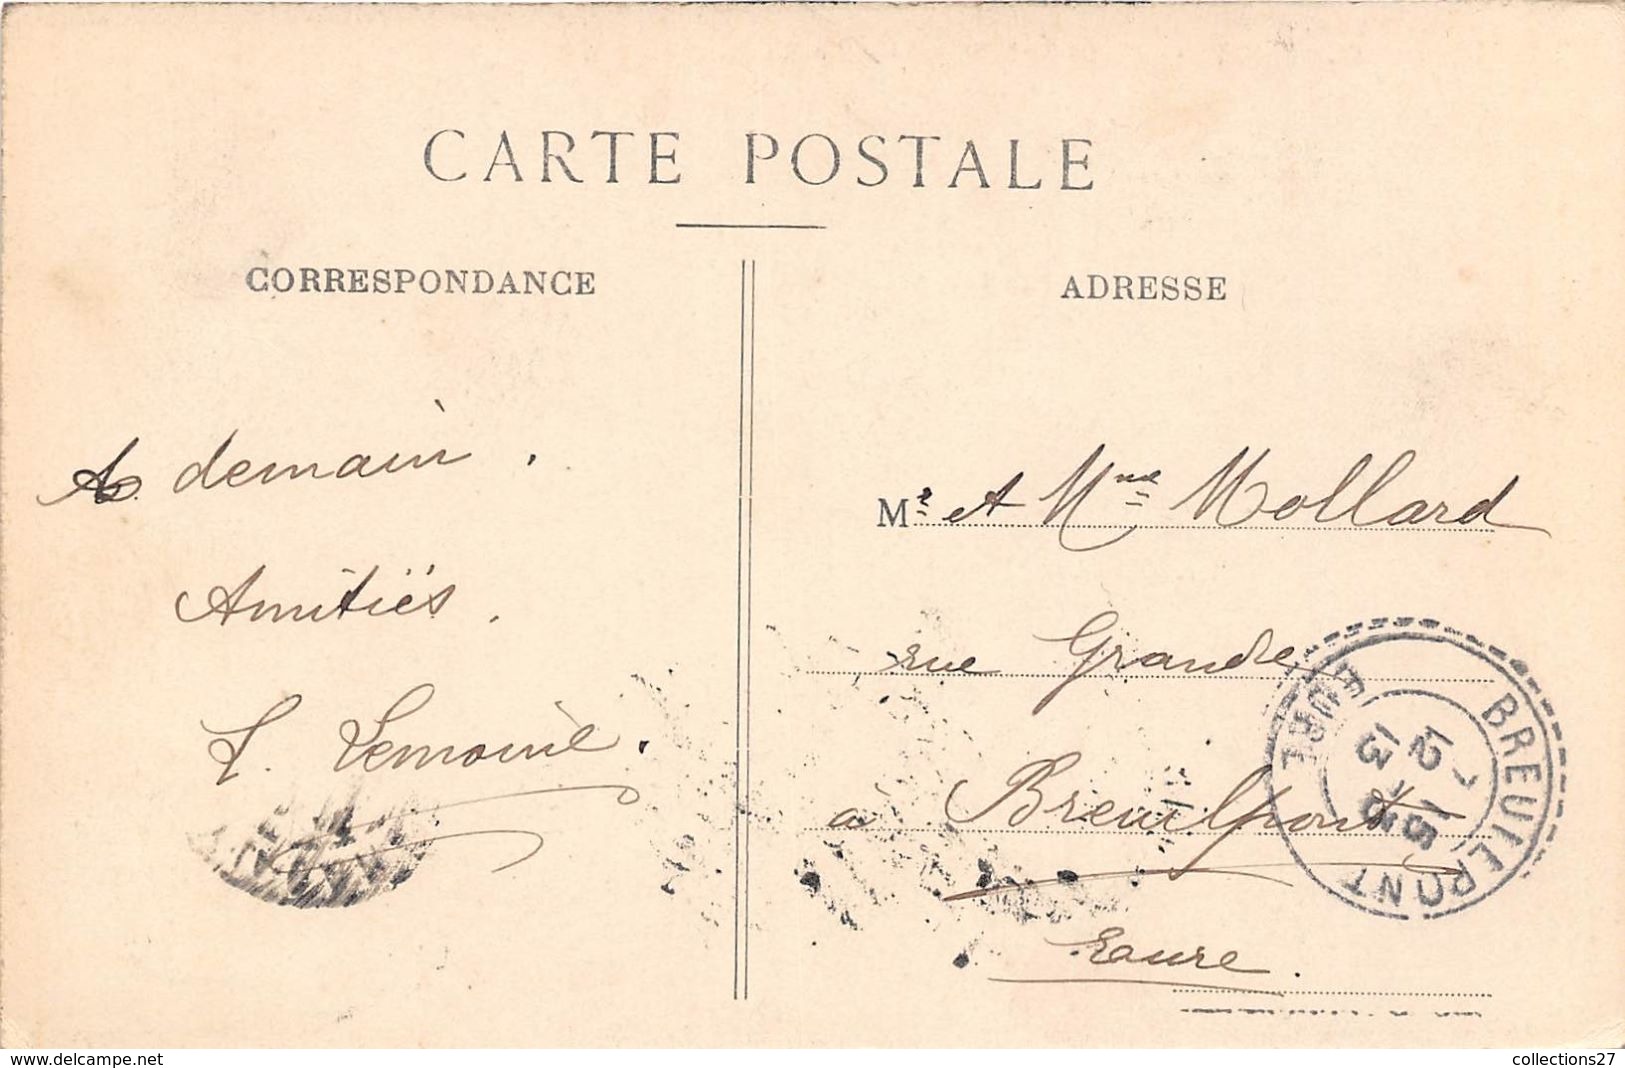 CARTE POSTALE
CORRESPONDANCE
A demain.
Amitiés.
L. Lemoine.
ADRESSE
Mr et Mme Mollard
rue Grande
à Breuilpont
Eure.
BREUILPONT
EURE
www.delcampe.net
collections27